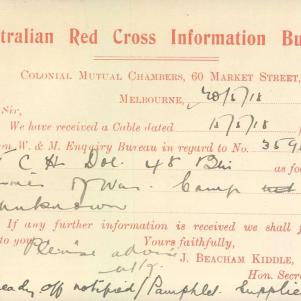 stralian Red Cross Information Bu
COLONIAL MUTUAL CHAMBERS, 60 MARKET STREET,
MELBOURNE, 20/6/18
Sir,
We have received a Cable dated 15/6/18
on W. & M. Enquiry Bureau in regard to No. 359
C H Doe 48 Bn as fo
of War. Camp not
unknown
If any further information is received we shall f
to you. Yours faithfully,
Please advise J. BEACHAM KIDDLE,
Hon. Secre
ready off notified/Pamphlet Supplie